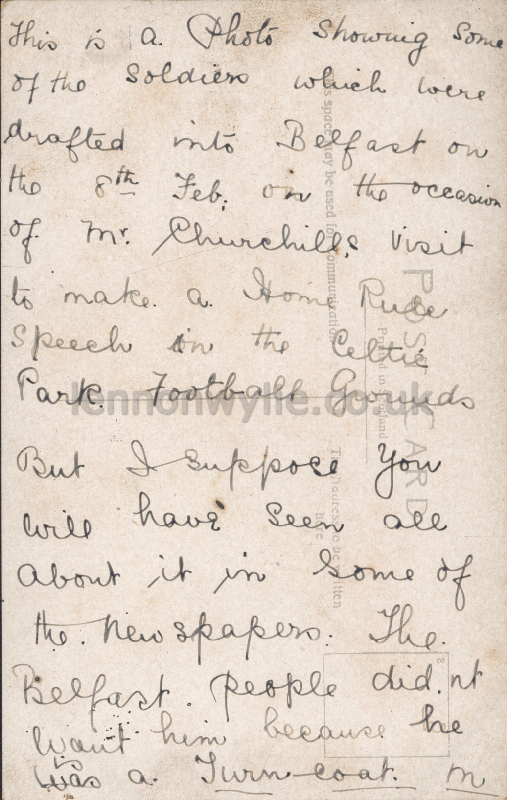 This is a Photo Showing Some
of the Soldiers which were
drafted into Belfast on
the 8th Feb. on the occasion
of Mr. Churchills Visit
to make a Home Rule
Speech in the Celtic
Park. Football Grounds
But I suppose You
will have Seen all
about it in Some of
the Newspapers. The
Belfast people did.nt
want him because he
was a Turn-coat. M
POST CARD
This space may be used for communication
Printed in England
The address to be written
here
lennonwylie.co.uk